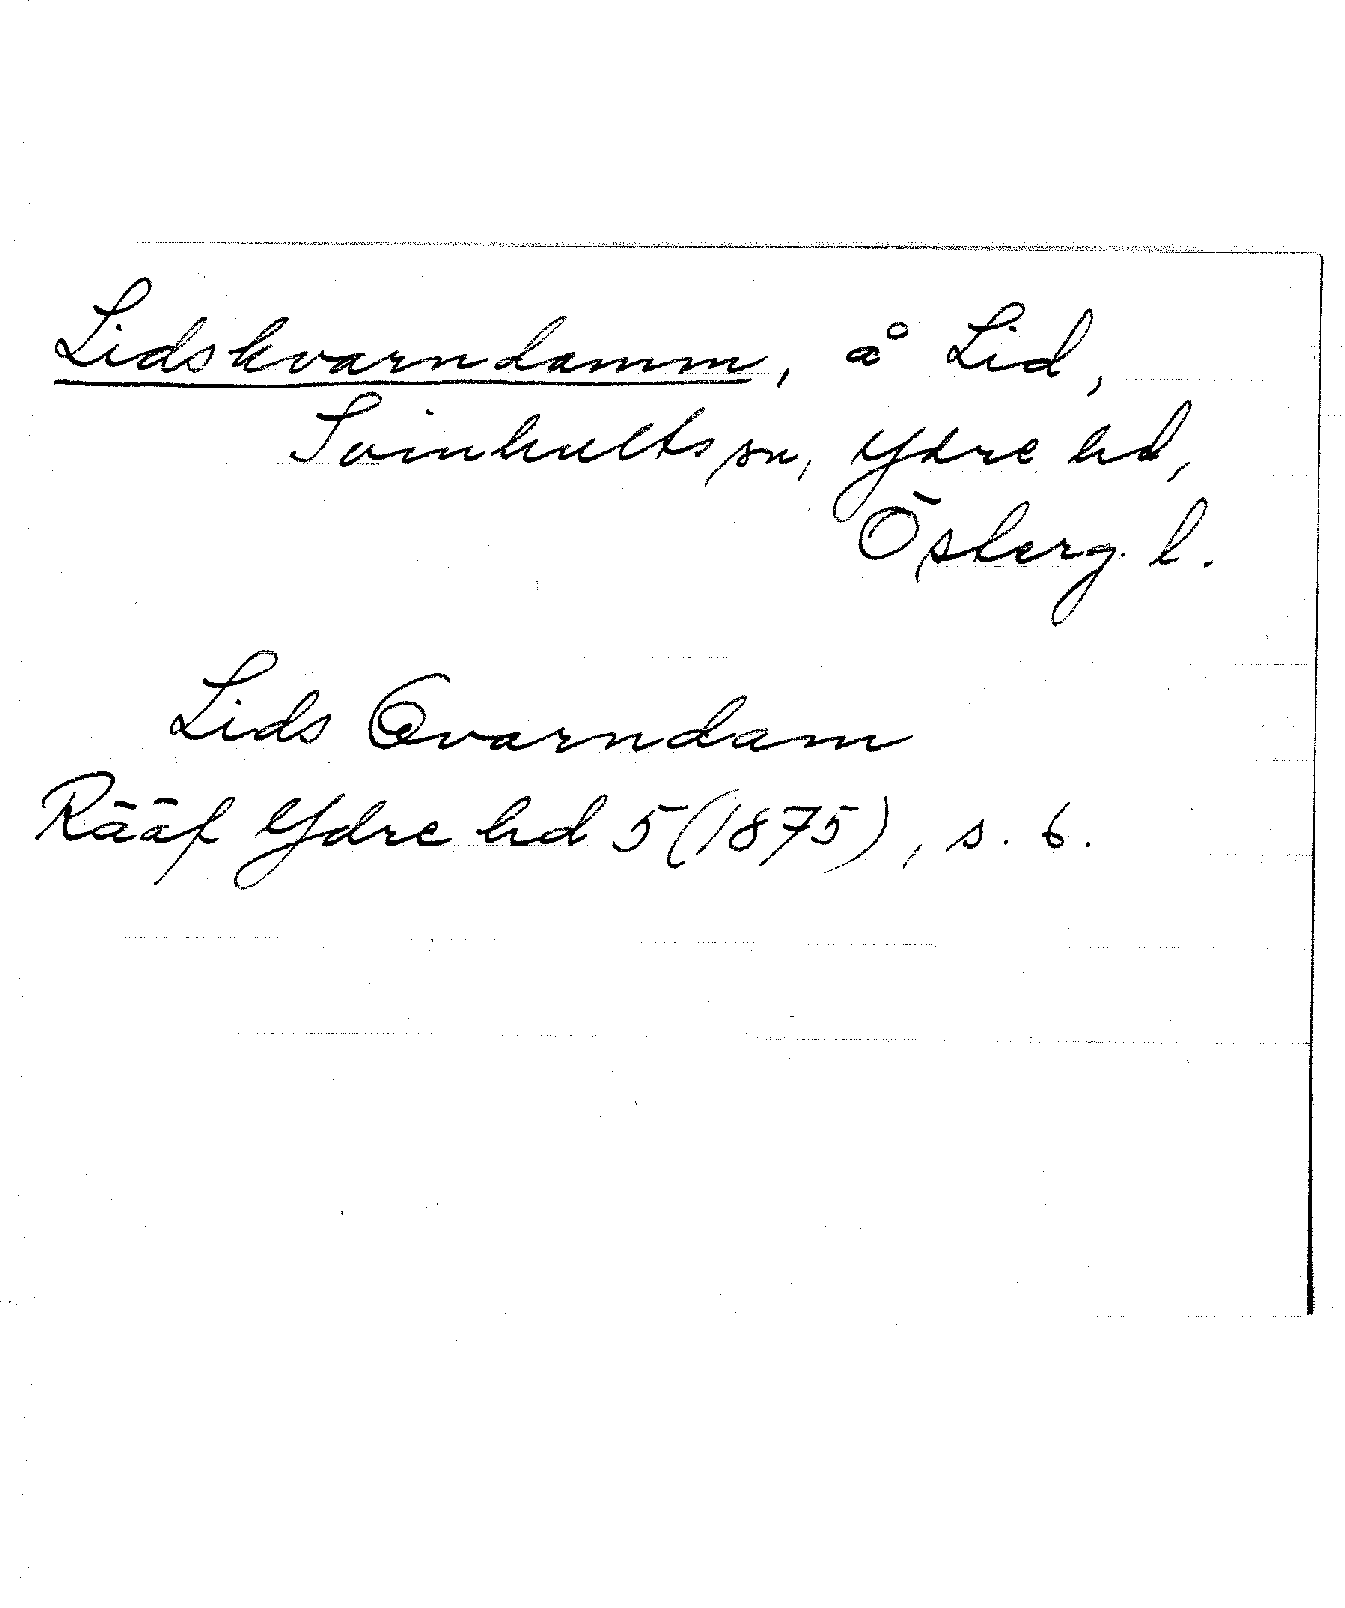 Lidskvarndamm, å Lid,
Svinhults sn, Ydre hd,
Östergl.
Lids Qvarndam
Rääf Ydre hd 5 (1875), s. 6.